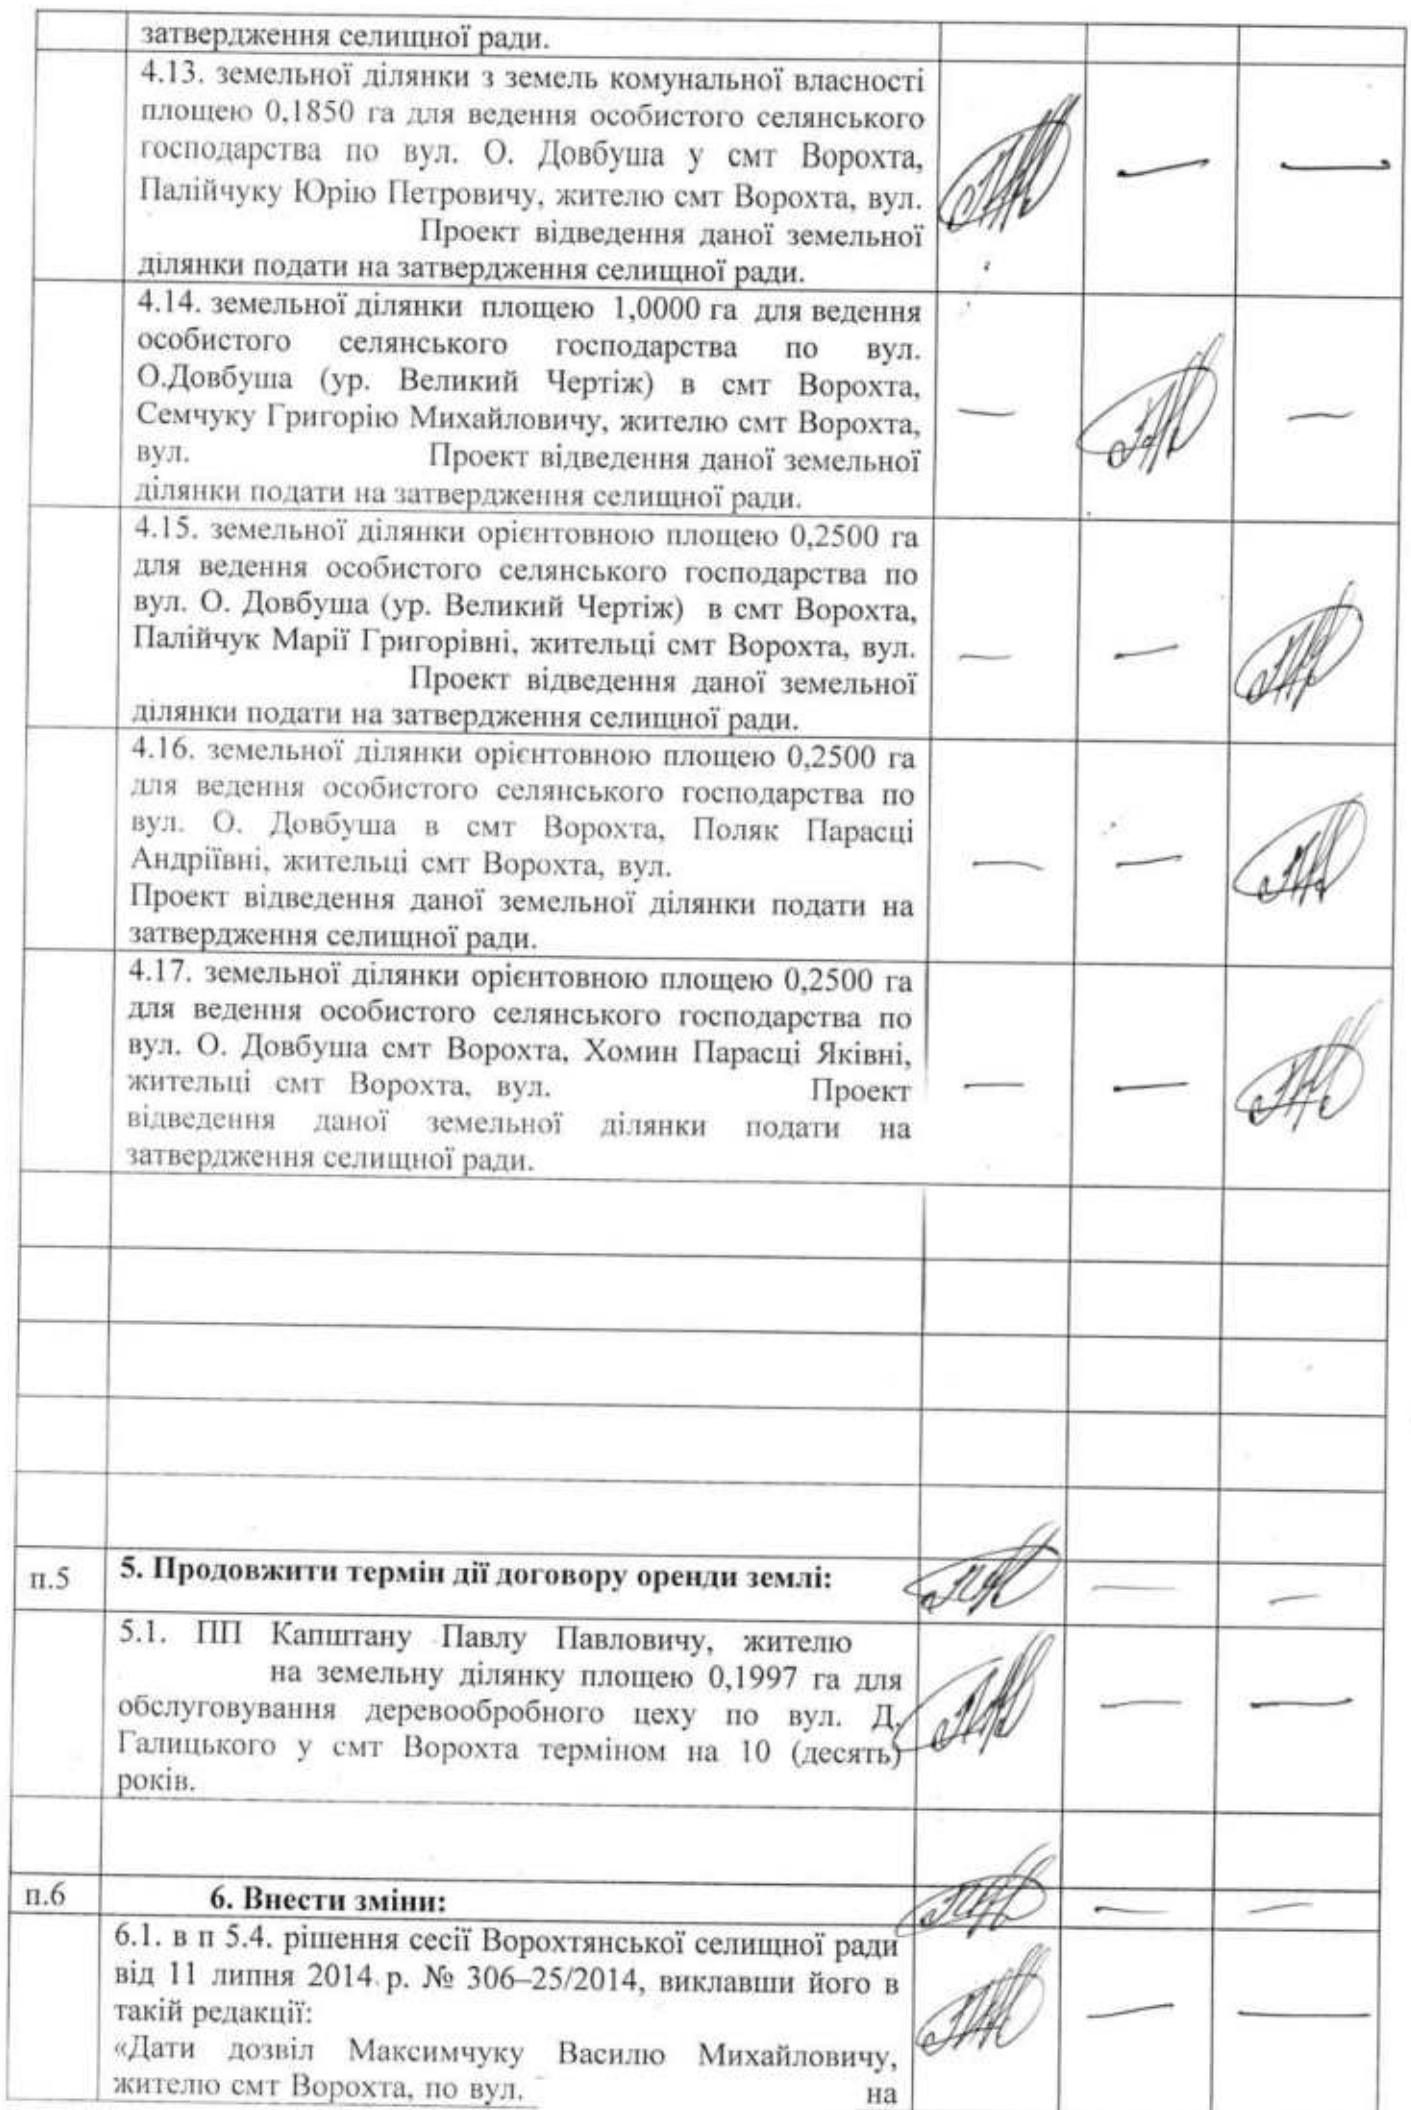 затвердження селищної ради.
4.13. земельної ділянки з земель комунальної власності
площею 0,1850 га для ведення особистого селянського
господарства по вул. О. Довбуша у смт Ворохта,
Палійчуку Юрію Петровичу, жителю смт Ворохта, вул.
Проект відведення даної земельної
ділянки подати на затвердження селищної ради.
4.14. земельної ділянки площею 1,0000 га для ведення
особистого селянського господарства по вул.
О.Довбуша (ур. Великий Чертіж) в смт Ворохта,
Семчуку Григорію Михайловичу, жителю смт Ворохта,
вул. Проект відведення даної земельної
ділянки подати на затвердження селищної ради.
4.15. земельної ділянки орієнтовною площею 0,2500 га
для ведення особистого селянського господарства по
вул. О. Довбуша (ур. Великий Чертіж) в смт Ворохта,
Палійчук Марії Григорівні, жительці смт Ворохта, вул.
Проект відведення даної земельної
ділянки подати на затвердження селищної ради.
4.16. земельної ділянки орієнтовною площею 0,2500 га
для ведення особистого селянського господарства по
вул. О. Довбуша в смт Ворохта, Поляк Парасці
Андріївні, жительці смт Ворохта, вул.
Проект відведення даної земельної ділянки подати на
затвердження селищної ради.
4.17. земельної ділянки орієнтовною площею 0,2500 га
для ведення особистого селянського господарства по
вул. О. Довбуша смт Ворохта, Хомин Парасці Яківні,
жительці смт Ворохта, вул. Проект
відведення даної земельної ділянки подати на
затвердження селищної ради.
п.5 5. Продовжити термін дії договору оренди землі:
5.1. ПП Капштану Павлу Павловичу, жителю
на земельну ділянку площею 0,1997 га для
обслуговування деревообробного цеху по вул. Д.
Галицького у смт Ворохта терміном на 10 (десять)
років.
п.6 6. Внести зміни:
6.1. в п 5.4. рішення сесії Ворохтянської селищної ради
від 11 липня 2014 р. № 306–25/2014, виклавши його в
такій редакції:
«Дати дозвіл Максимчуку Василю Михайловичу,
жителю смт Ворохта, по вул. на